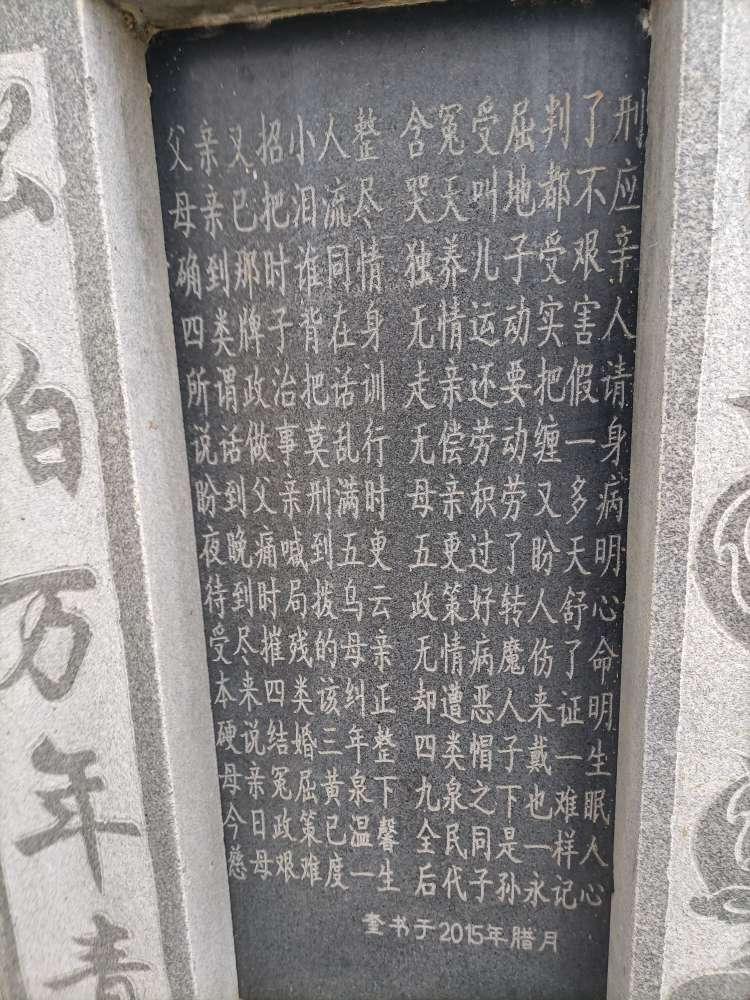 父亲又招小人整 含冤受屈判了刑
母亲已把泪流尽 哭天叫地都不应
确到那时谁同情 独养儿子受艰辛
四类牌子背在身 无情运动实害人
所谓政治把话训 走亲还要把假请
说话做事莫乱行 无偿劳动缠一身
盼到父亲刑满时 母亲积劳又多病
夜晚痛喊到五更 五更过了盼天明
待到时局拨乌云 政策好转人舒心
受尽摧残的母亲 无情病魔伤了命
本来四类该纠正 却遭恶人来证明
硬说结婚三年整 四类帽子戴一生
母亲冤屈黄泉下 九泉之下也难眠
今日政策已温馨 全民同是一样人
慈母艰难度一生 后代子孙永记心
奎书于2015年腊月
自万年青